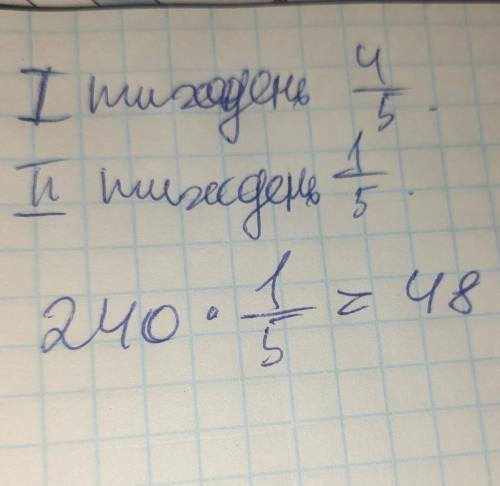 I тиждень 4/5.
II тиждень 1/5.
240 · 1/5 = 48